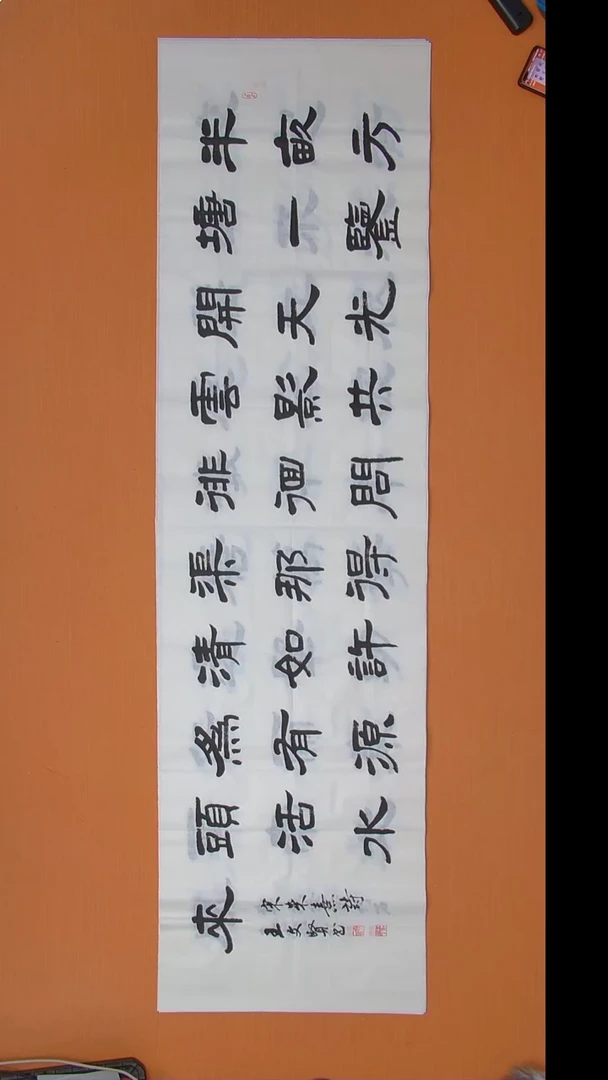 半畝方
塘一鑒
開天光
雲影共
徘徊問
渠那得
清如許
為有源
頭活水
來
宋朱熹詩
王文賢书